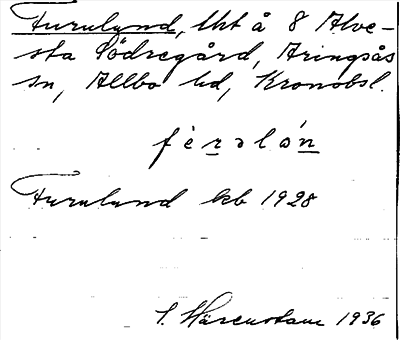 Furulund, lht å 8 Alve-
sta Södregård, Aringsås
sn, Allbo hd, Kronobsl.
fèrəlón
Furulund kb 1928
S. Härenstam 1936